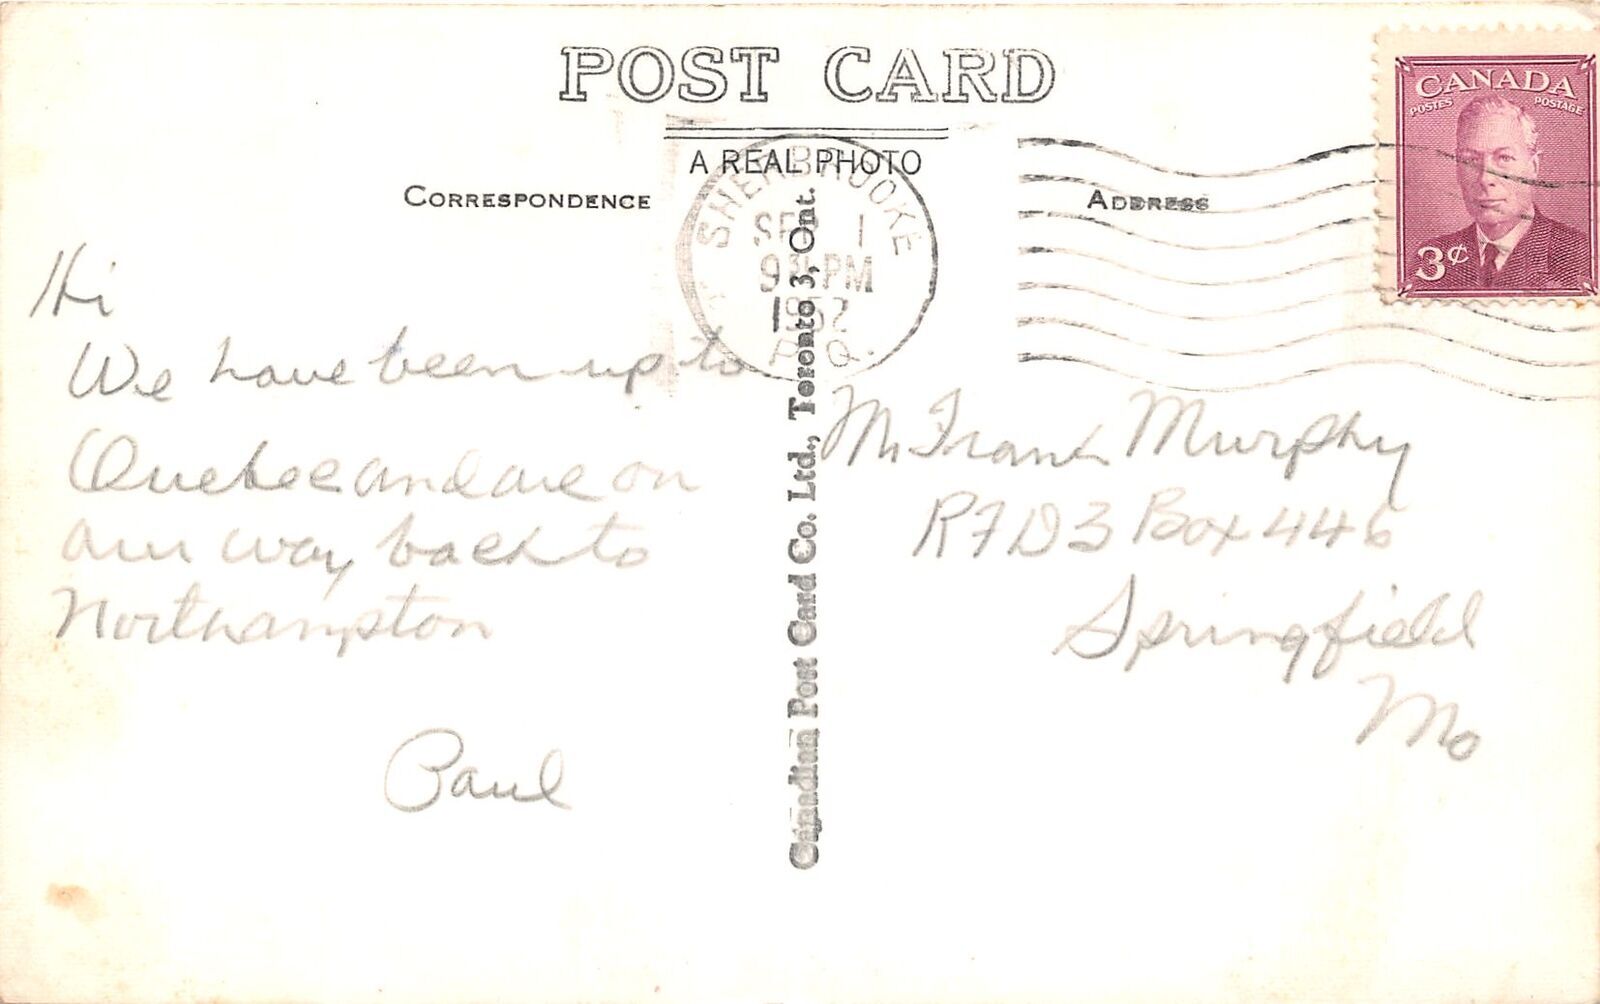 POST CARD
A REAL PHOTO
CORRESPONDENCE
ADDRESS
SHERBROOKE
SEP 1
PM
1952
P.Q.
CANADA
POSTES POSTAGE
3¢
Hi
We have been up to
Quebec and are on
our way back to
Northampton
Paul
Canadian Post Card Co. Ltd., Toronto 3, Ont.
Mr Frank Murphy
RFD 3 Box 446
Springfield
Mo